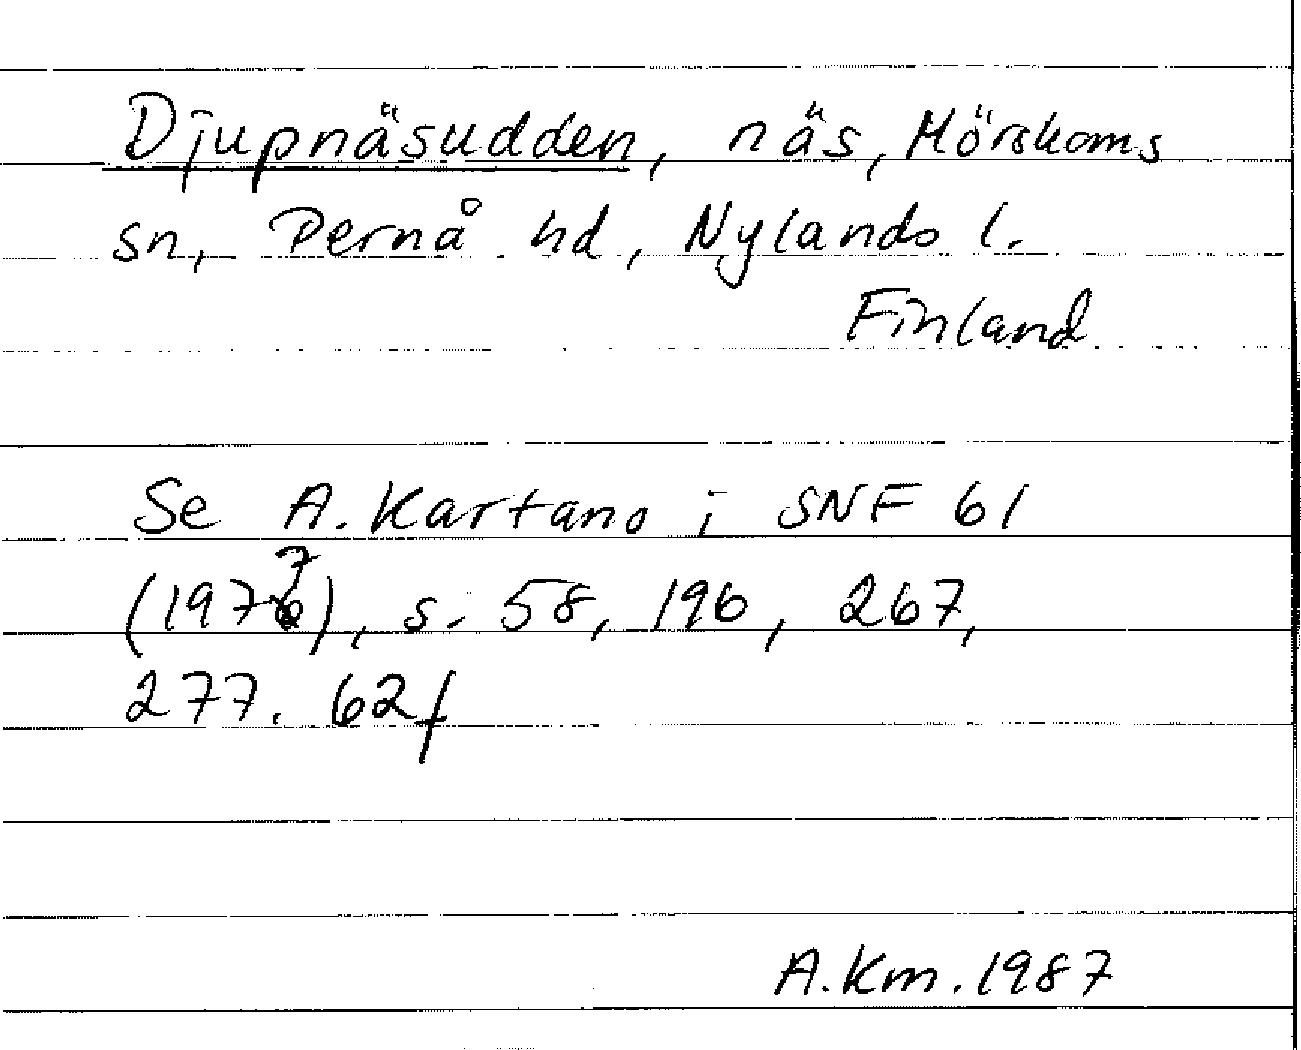 Djupnäsudden, näs, Mörskoms
sn, Pernå hd, Nylands l.
Finland
Se A. Kartano i SNF 61
(1977), s. 58, 196, 267,
277. 62f
A.Km.1987